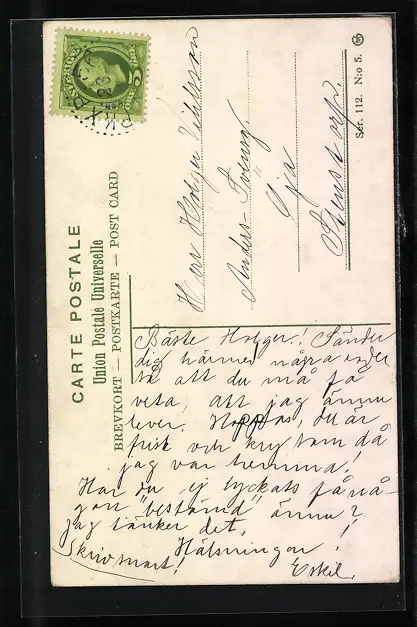 CARTE POSTALE
Union Postale Universelle
BREVKORT — POSTKARTE — POST CARD
SVERIGE
5
Herr Holger
Anders-
Ser. 112. N:o 5.
Bäste Holger! Sänder
dig härmed några rader
så att du må få
veta, att jag ännu
lever. Hoppas, du är
frisk och kry som då
jag var hemma!
Har du ej lyckats få nå-
gon "bestämd" ännu?
jag tänker det.
Skriv snart! Hälsningar!
Eskil.